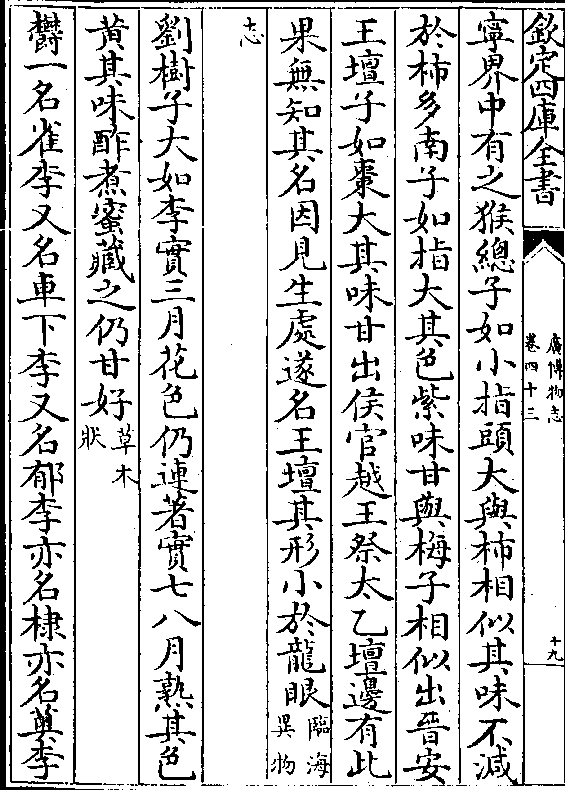 欽定四庫全書
廣博物志
卷四十三
十九
寧界中有之猴總子如小指頭大與柿相似其味不減
於柿多南子如指大其色紫味甘與梅子相似出晉安
王壇子如棗大其味甘出侯官越王祭太乙壇邊有此
果無知其名因見生處遂名王壇其形小於龍眼臨海異物
志
劉樹子大如李實三月花色仍連著實七八月熟其色
黃其味酢煮蜜藏之仍甘好草木狀
欝一名雀李又名車下李又名郁李亦名棣亦名薁李